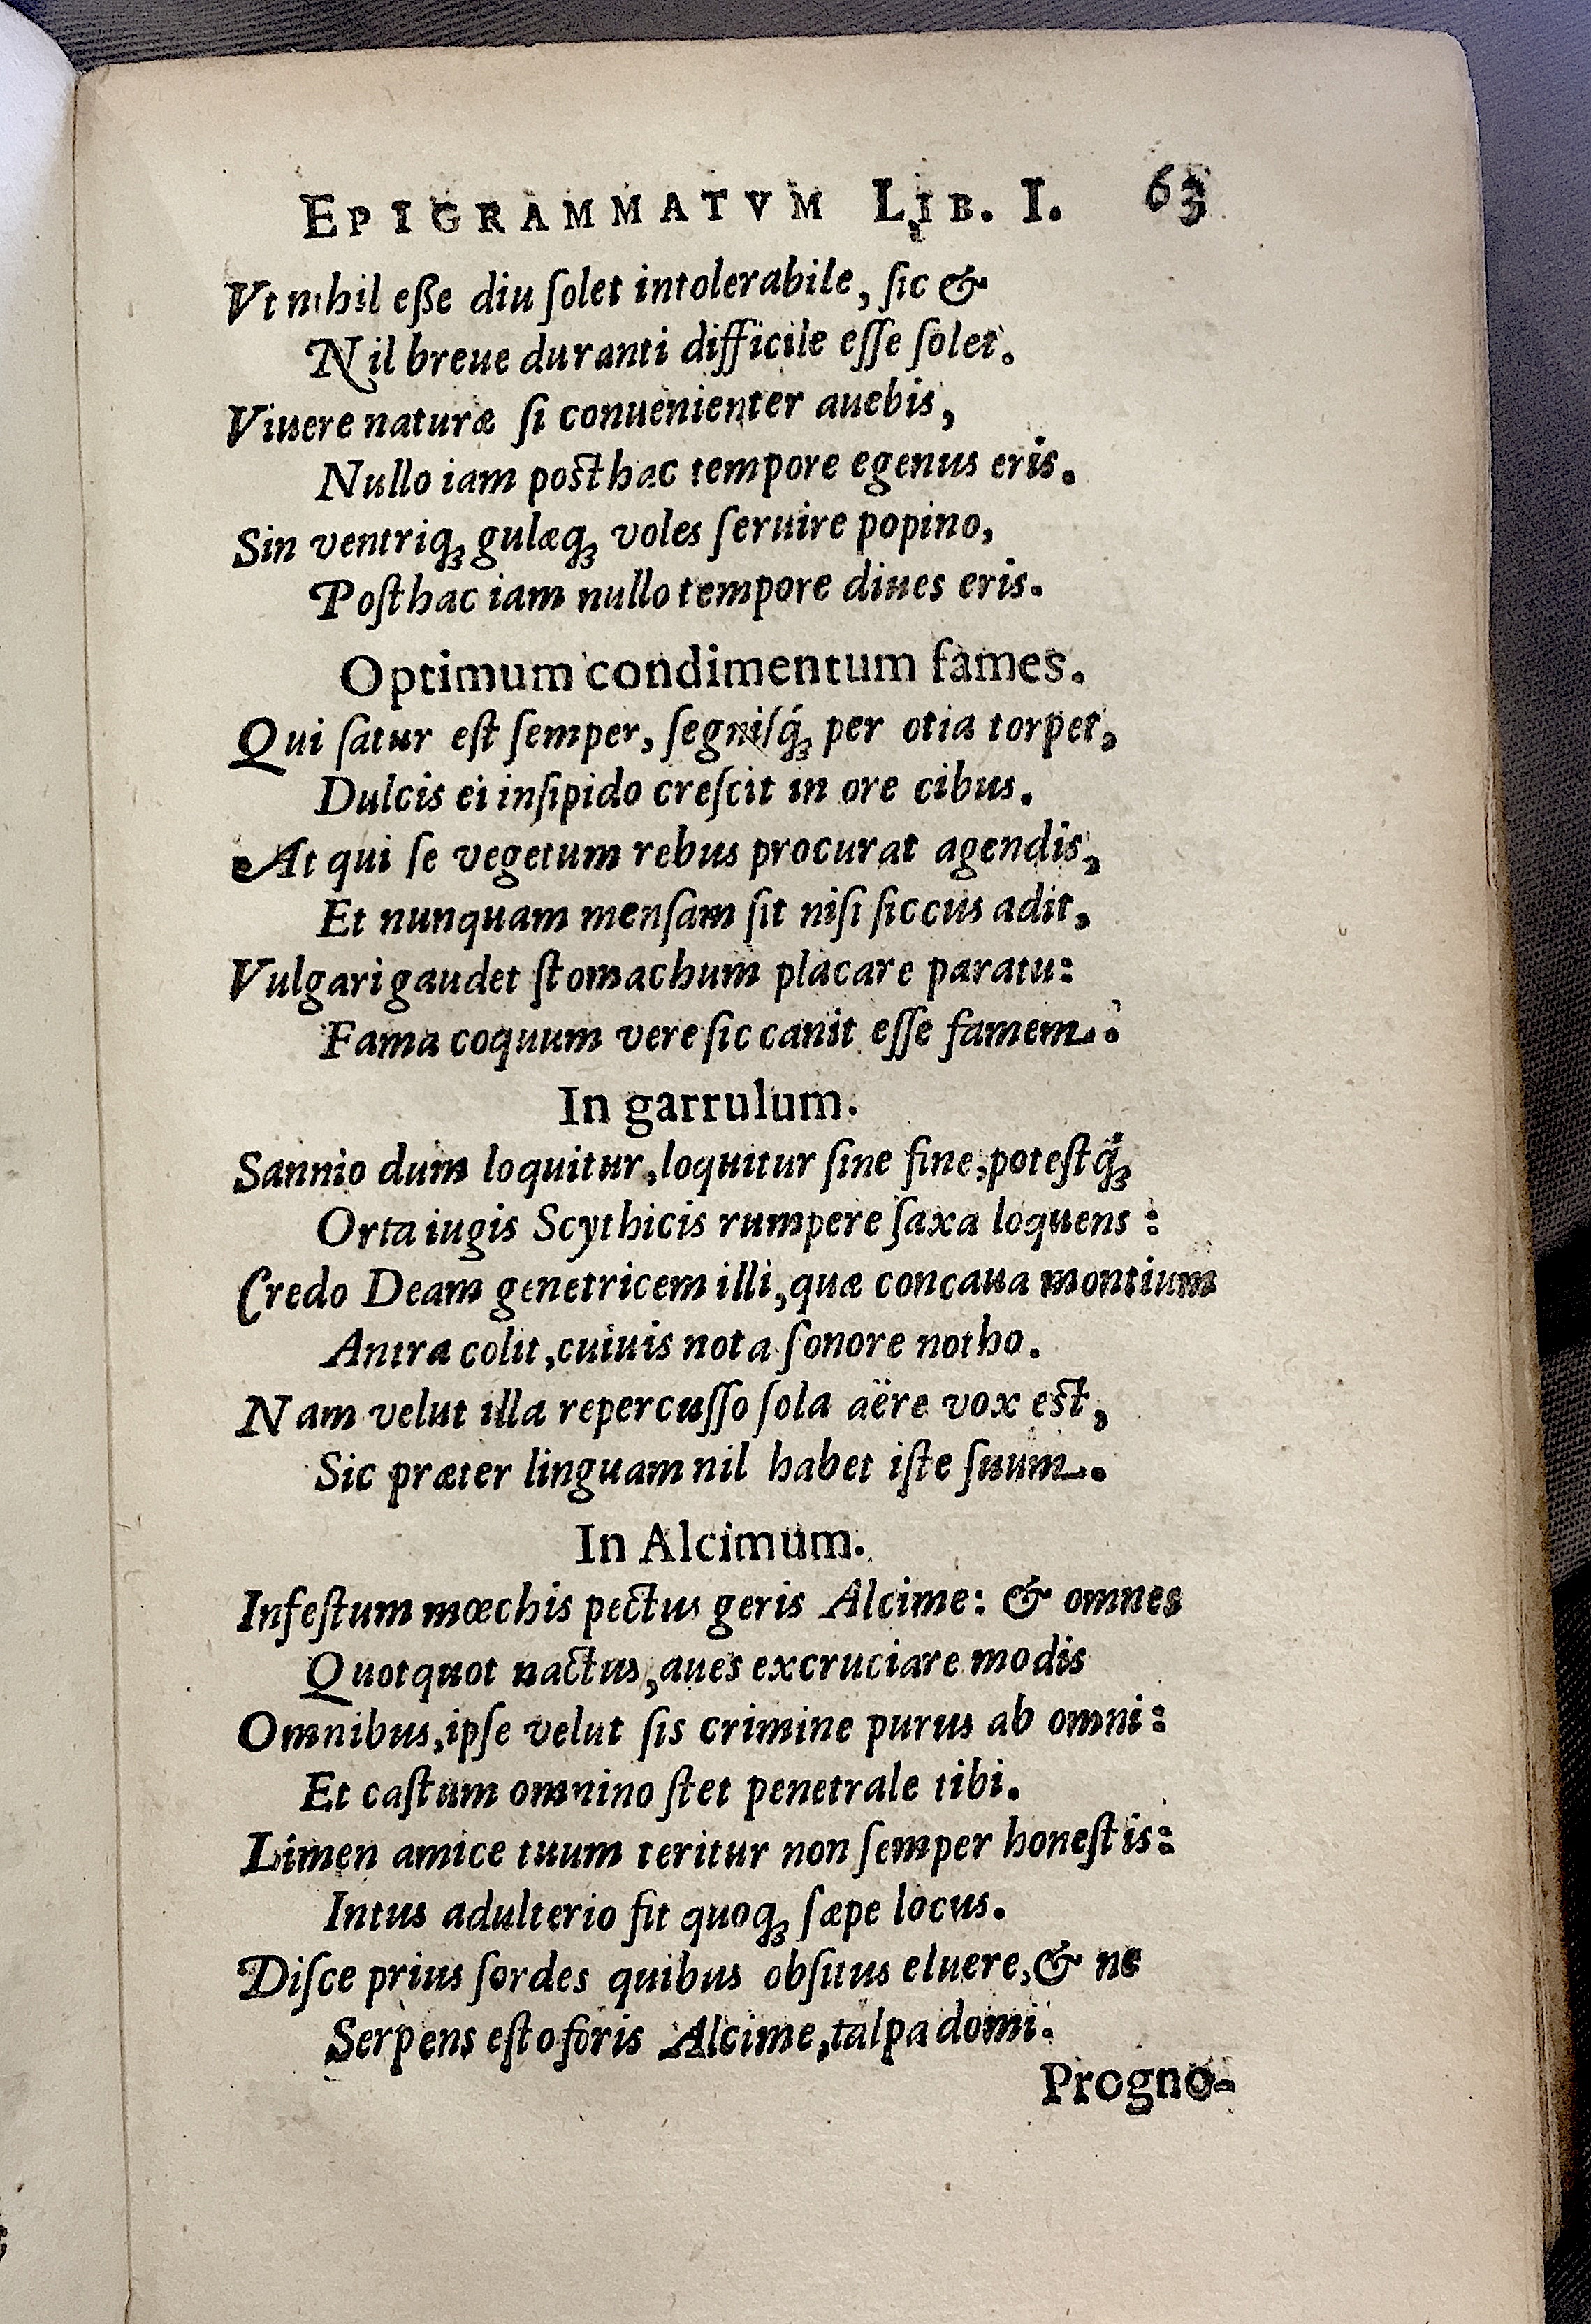 EPIGRAMMATVM LIB. I. 63
Vt nihil eße diu ſolet intolerabile, ſic &
Nil breue duranti difficile eſſe ſolet.
Viuere naturæ ſi conuenienter auebis,
Nullo iam posthac tempore egenus eris.
Sin ventriq́ꝫ gulæqꝫ voles ſeruire popino,
Poſthac iam nullo tempore diues eris.
Optimum condimentum fames.
Qui ſatur eſt ſemper, ſegniſq́ꝫ per otia torpet,
Dulcis ei inſipido creſcit in ore cibus.
At qui ſe vegetum rebus procurat agendis,
Et nunquam menſam ſit niſi ſiccus adit,
Vulgari gaudet ſtomachum placare paratu:
Fama coquum vere ſic canit eſſe famem.
In garrulum.
Sannio dum loquitur, loquitur ſine fine, poteſtq́ꝫ
Orta iugis Scythicis rumpere ſaxa loquens:
Credo Deam genetricem illi, quæ concaua montium
Antra colit, cuiuis nota ſonore notho.
Nam velut illa repercuſſo ſola aëre vox est,
Sic præter linguam nil habet iſte ſuum.
In Alcimum.
Infeſtum mœchis pectus geris Alcime: & omnes
Quotquot nactus, aues excruciare modis
Omnibus, ipſe velut ſis crimine purus ab omni:
Et caſtum omnino ſtet penetrale tibi.
Limen amice tuum teritur non ſemper honeſtis:
Intus adulterio fit quoqꝫ ſæpe locus.
Diſce prius ſordes quibus obſitus eluere, & ne
Serpens eſto foris Alcime, talpa domi.
Progno-